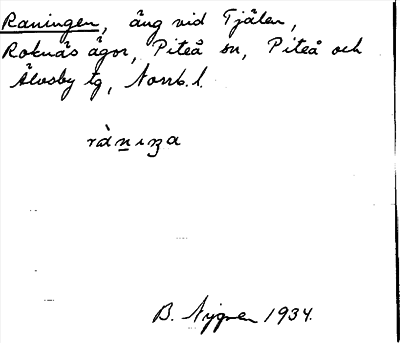 Raningen, äng vid Tjälen,
Roknäs ägor, Piteå sn, Piteå och
Älvsby tg, Norrb. l.
rànıŋa
B. Nygren 1934.